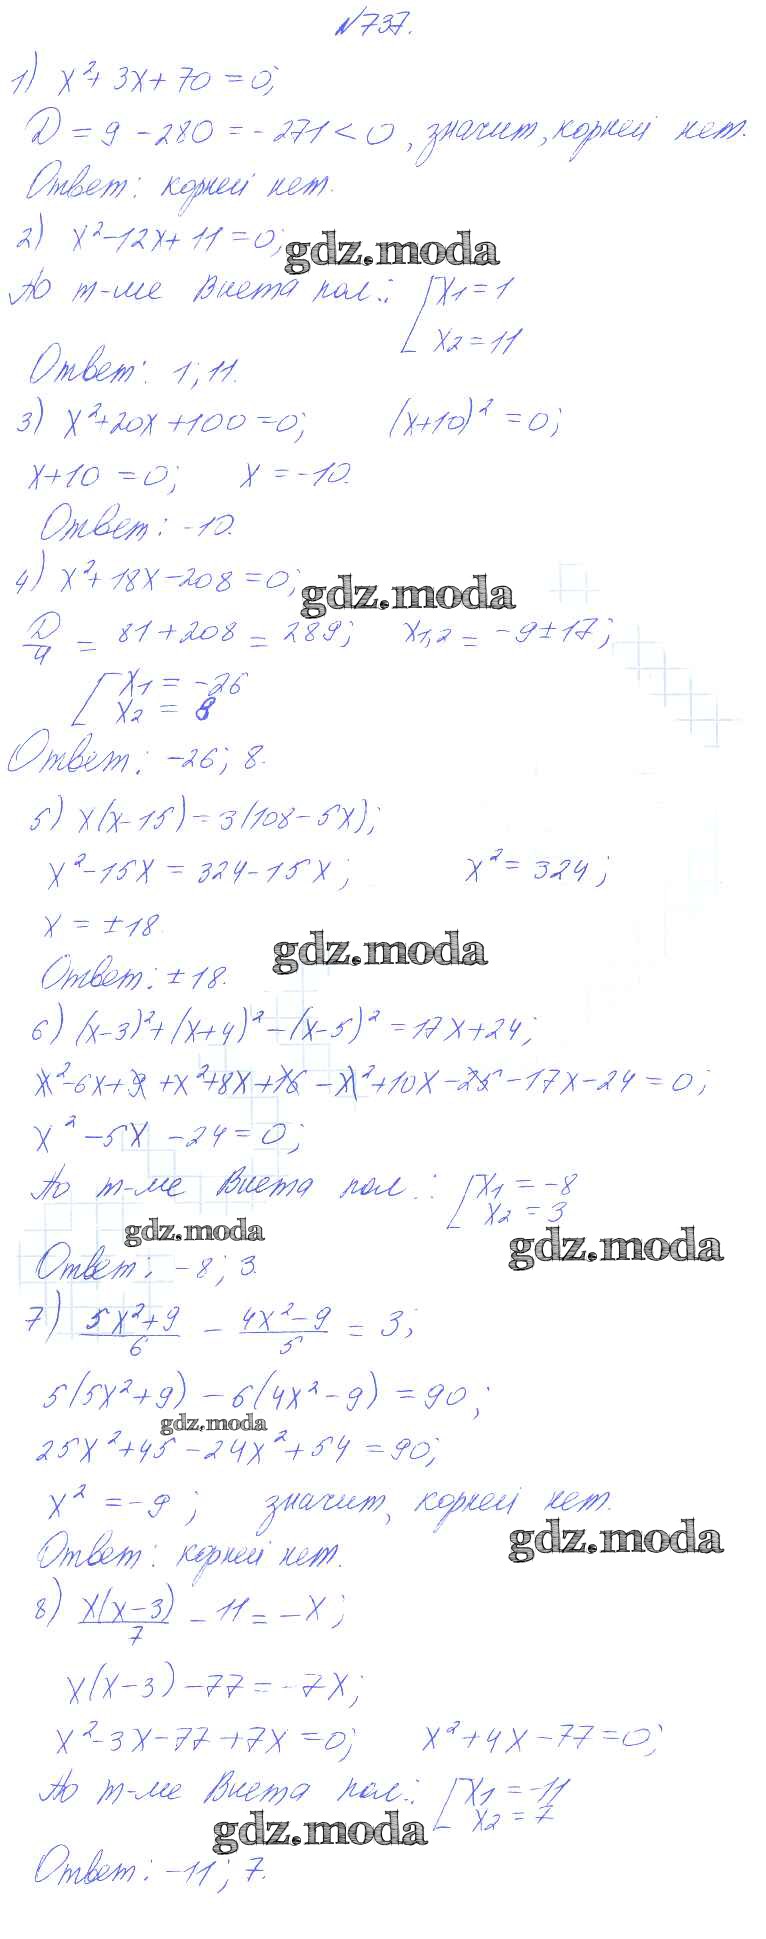 №737.
1) x²+3x+70=0;
D=9-280=-271<0, значит, корней нет.
Ответ: корней нет.
2) x²-12x+11=0;
gdz.moda
По т-ме Виета пол.: [x1=1
x2=11
Ответ: 1; 11.
3) x²+20x+100=0; (x+10)²=0;
x+10=0; x=-10.
Ответ: -10.
4) x²+18x-208=0;
gdz.moda
D/4 = 81+208 = 289; x1,2 = -9±17;
[x1 = -26
x2 = 8
Ответ: -26; 8.
5) x(x-15)=3(108-5x);
x²-15x=324-15x; x²=324;
x=±18.
gdz.moda
Ответ: ±18.
6) (x-3)²+(x+4)²-(x-5)²=17x+24;
x²-6x+9+x²+8x+16-x²+10x-25-17x-24=0;
x²-5x-24=0;
По т-ме Виета пол.: [x1=-8
x2=3
gdz.moda
gdz.moda
Ответ: -8; 3.
7) (5x²+9)/6 - (4x²-9)/5 = 3;
5(5x²+9)-6(4x²-9)=90;
gdz.moda
25x²+45-24x²+54=90;
x²=-9; значит, корней нет.
gdz.moda
Ответ: корней нет.
8) x(x-3)/7 - 11 = -x;
x(x-3)-77=-7x;
x²-3x-77+7x=0; x²+4x-77=0;
По т-ме Виета пол.: [x1=-11
x2=7
gdz.moda
Ответ: -11; 7.